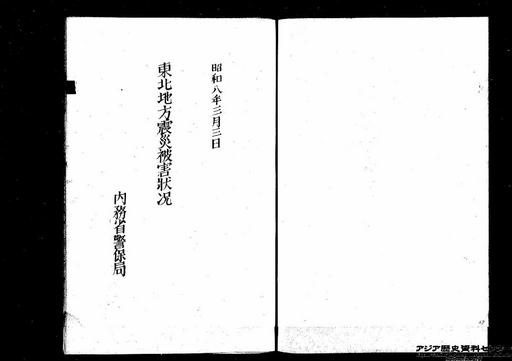 昭和八年三月三日
東北地方震災被害狀况
内務省警保局
アジア歴史資料センター